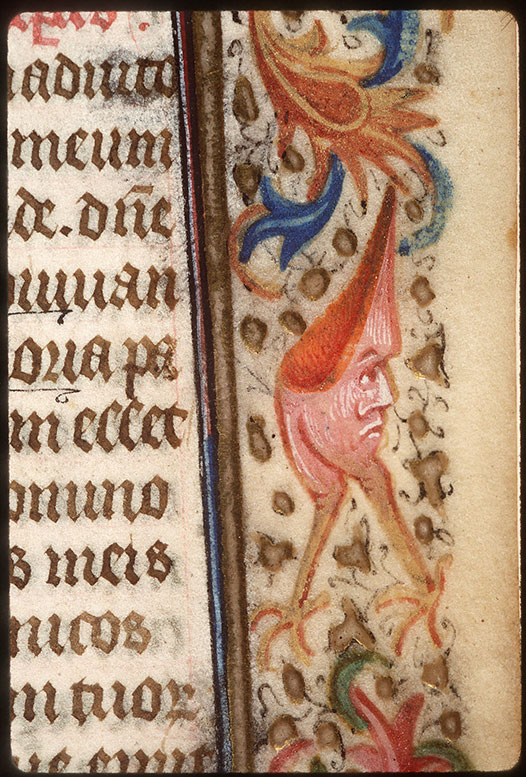 adiuto
meum
de. dn̄e
uuuan
oria pa
m esset
omino
s meis
micos
m tuoꝝ